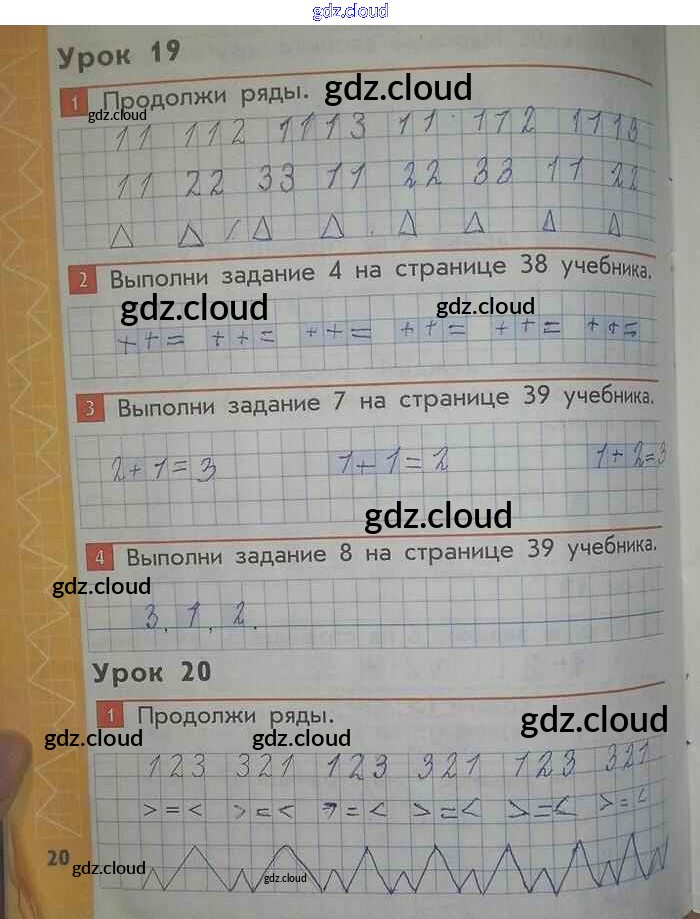 gdz.cloud
Урок 19
1 Продолжи ряды. gdz.cloud
gdz.cloud
11 112 1113 11 112 1113
11 22 33 11 22 33 11 22
2 Выполни задание 4 на странице 38 учебника.
gdz.cloud gdz.cloud
++= ++= ++= ++= ++= ++=
3 Выполни задание 7 на странице 39 учебника.
2+1=3 1+1=2 1+2=3
gdz.cloud
4 Выполни задание 8 на странице 39 учебника.
gdz.cloud
3, 1, 2.
Урок 20
1 Продолжи ряды. gdz.cloud
gdz.cloud gdz.cloud
123 321 123 321 123 321
>=< >=< >=< >=< >=< >=<
20 gdz.cloud gdz.cloud